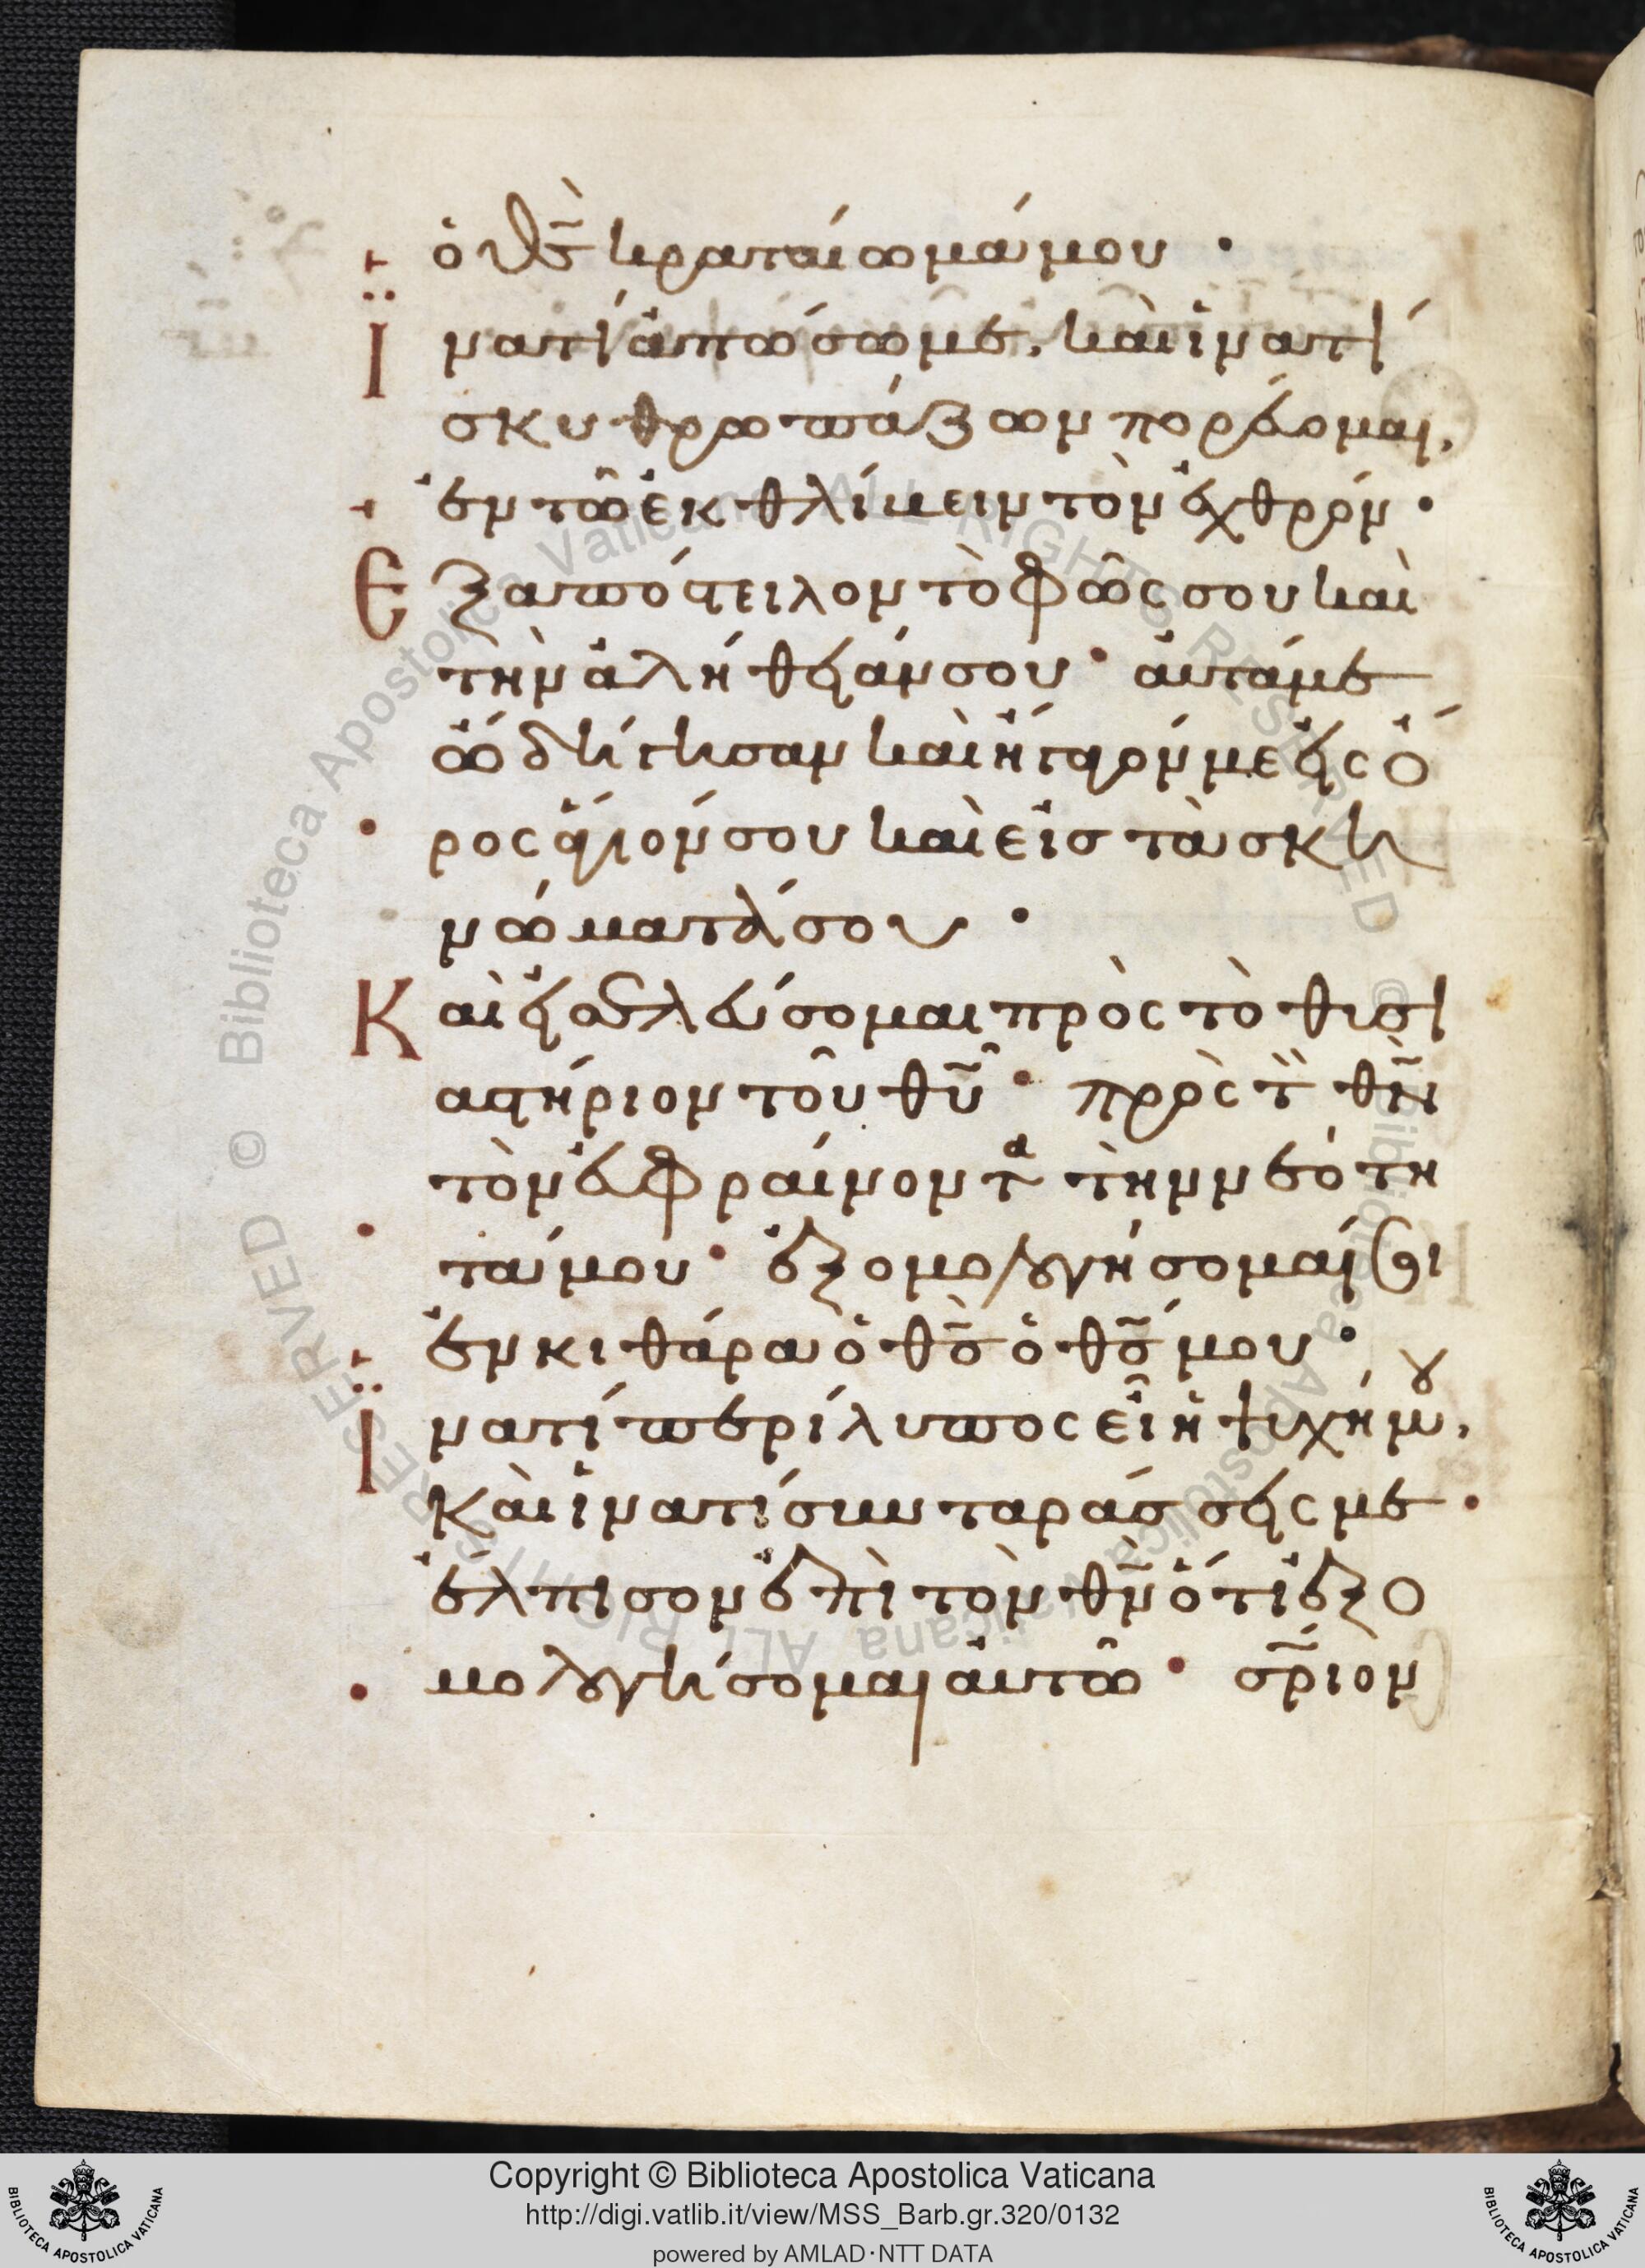 ὁ θς̃ κραταίωμά μου ·
Ϊνατί ἀπώσω με, καὶ ἱνατί
σκυθρωπάζων πορεύομαι,
ἐν τῶ ἐκθλίβειν τὸν ἐχθρόν ·
Ἐξαπόστειλον τὸ φῶς σου καὶ
τὴν ἀλήθειάν σου · αὐτά με
ὡδήγησαν καὶ ἤγαγόν με εἰς ὄ
ρος ἅγιόν σου καὶ εἰς τὰ σκη
νώματά σου ·
Καὶ εἰσελεύσομαι πρὸς τὸ θυσι
αστήριον τοῦ θυ̃ · πρὸς τ̃ θν̃
τὸν εὐφραίνοντα τὴν νεότη
τά μου · ἐξομολογήσομαί σοι
ἐν κιθάρα ὁ θς̃ ὁ θς̃ μου ·
Ϊνατί περίλυπος εἶ ἡ ψυχή μου,
καὶ ἱνατί συνταράσσεις με ·
ἔλπισον ἐπὶ τὸν θν̃ ὅτι ἐξο
μολογήσομαι αὐτῶ · σρ̃ιον
Copyright © Biblioteca Apostolica Vaticana
http://digi.vatlib.it/view/MSS_Barb.gr.320/0132
powered by AMLAD·NTT DATA
BIBLIOTECA APOSTOLICA VATICANA
BIBLIOTECA APOSTOLICA VATICANA
© Biblioteca Apostolica Vaticana ALL RIGHTS RESERVED © Biblioteca Apostolica Vaticana ALL RIGHTS RESERVED